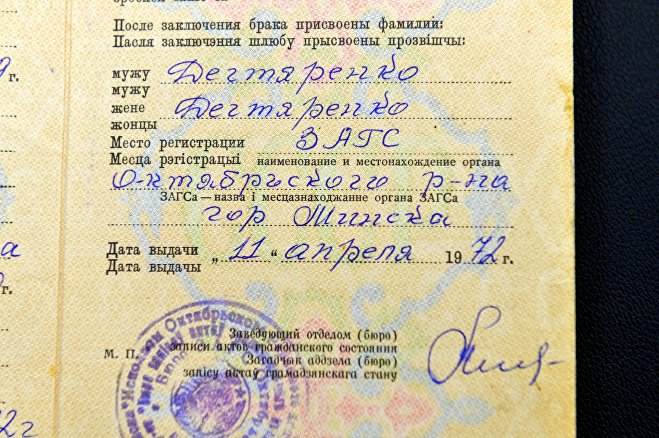 После заключения брака присвоены фамилии:
Пасля заключэння шлюбу прысвоены прозвішчы:
мужу Дегтяренко
мужу
жене Дегтяренко
жонцы
Место регистрации ЗАГС
Месца рэгістрацыі наименование и местонахождение органа
Октябрьского р-на
ЗАГСа — назва і месцазнаходжанне органа ЗАГСа
гор Минска
Дата выдачи „ 11 “ апреля 1972 г.
Дата выдачы
Заведующий отделом (бюро)
записи актов гражданского состояния
Загадчык аддзела (бюро)
запісу актаў грамадзянскага стану
М. П.
г.
а
2 г
Октябрьско